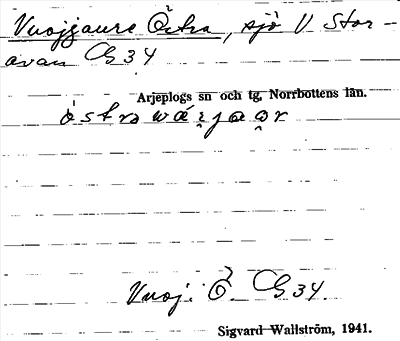 Vuojjaure Östra, sjö V Stor-
avan G34
Arjeplogs sn och tg, Norrbottens län.
östra
Vuoj. Ö. G34.
Sigvard Wallström, 1941.